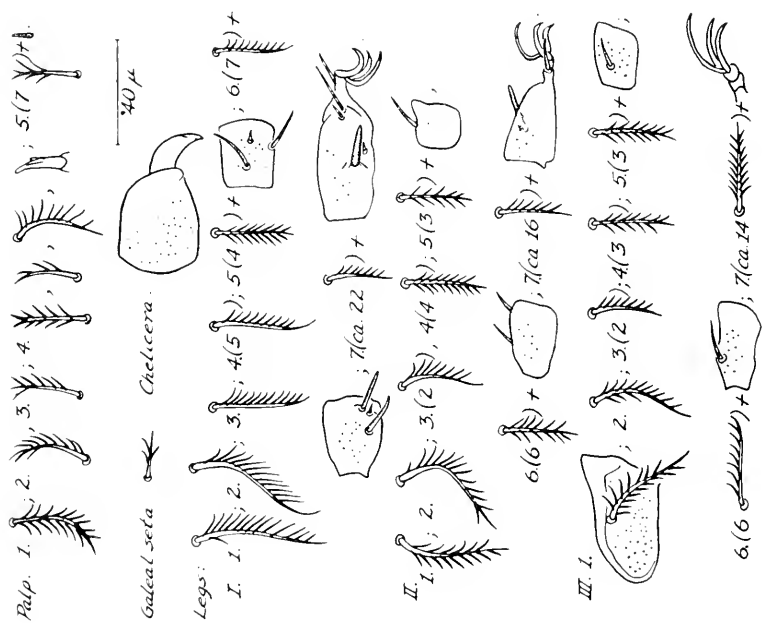 Palp. 1. ; 2. , 3. ; 4. , , ; 5.(7 )+ .
Galeal seta Chelicera. 40 μ
Legs:
I. 1. ; 2. ; 3. ; 4.(5 ); 5(4 )+ ; 6.(7 )+
; 7.(ca. 22 )+
II. 1. ; 2. ; 3.(2 ), 4(4 ); 5(3 )+ ,
6.(6 )+ ; 7.(ca 16 )+
III. 1. ; 2. ; 3.(2 ); 4.(3 ); 5.(3 )+ ;
6.(6 )+ ; 7.(ca. 14 )+